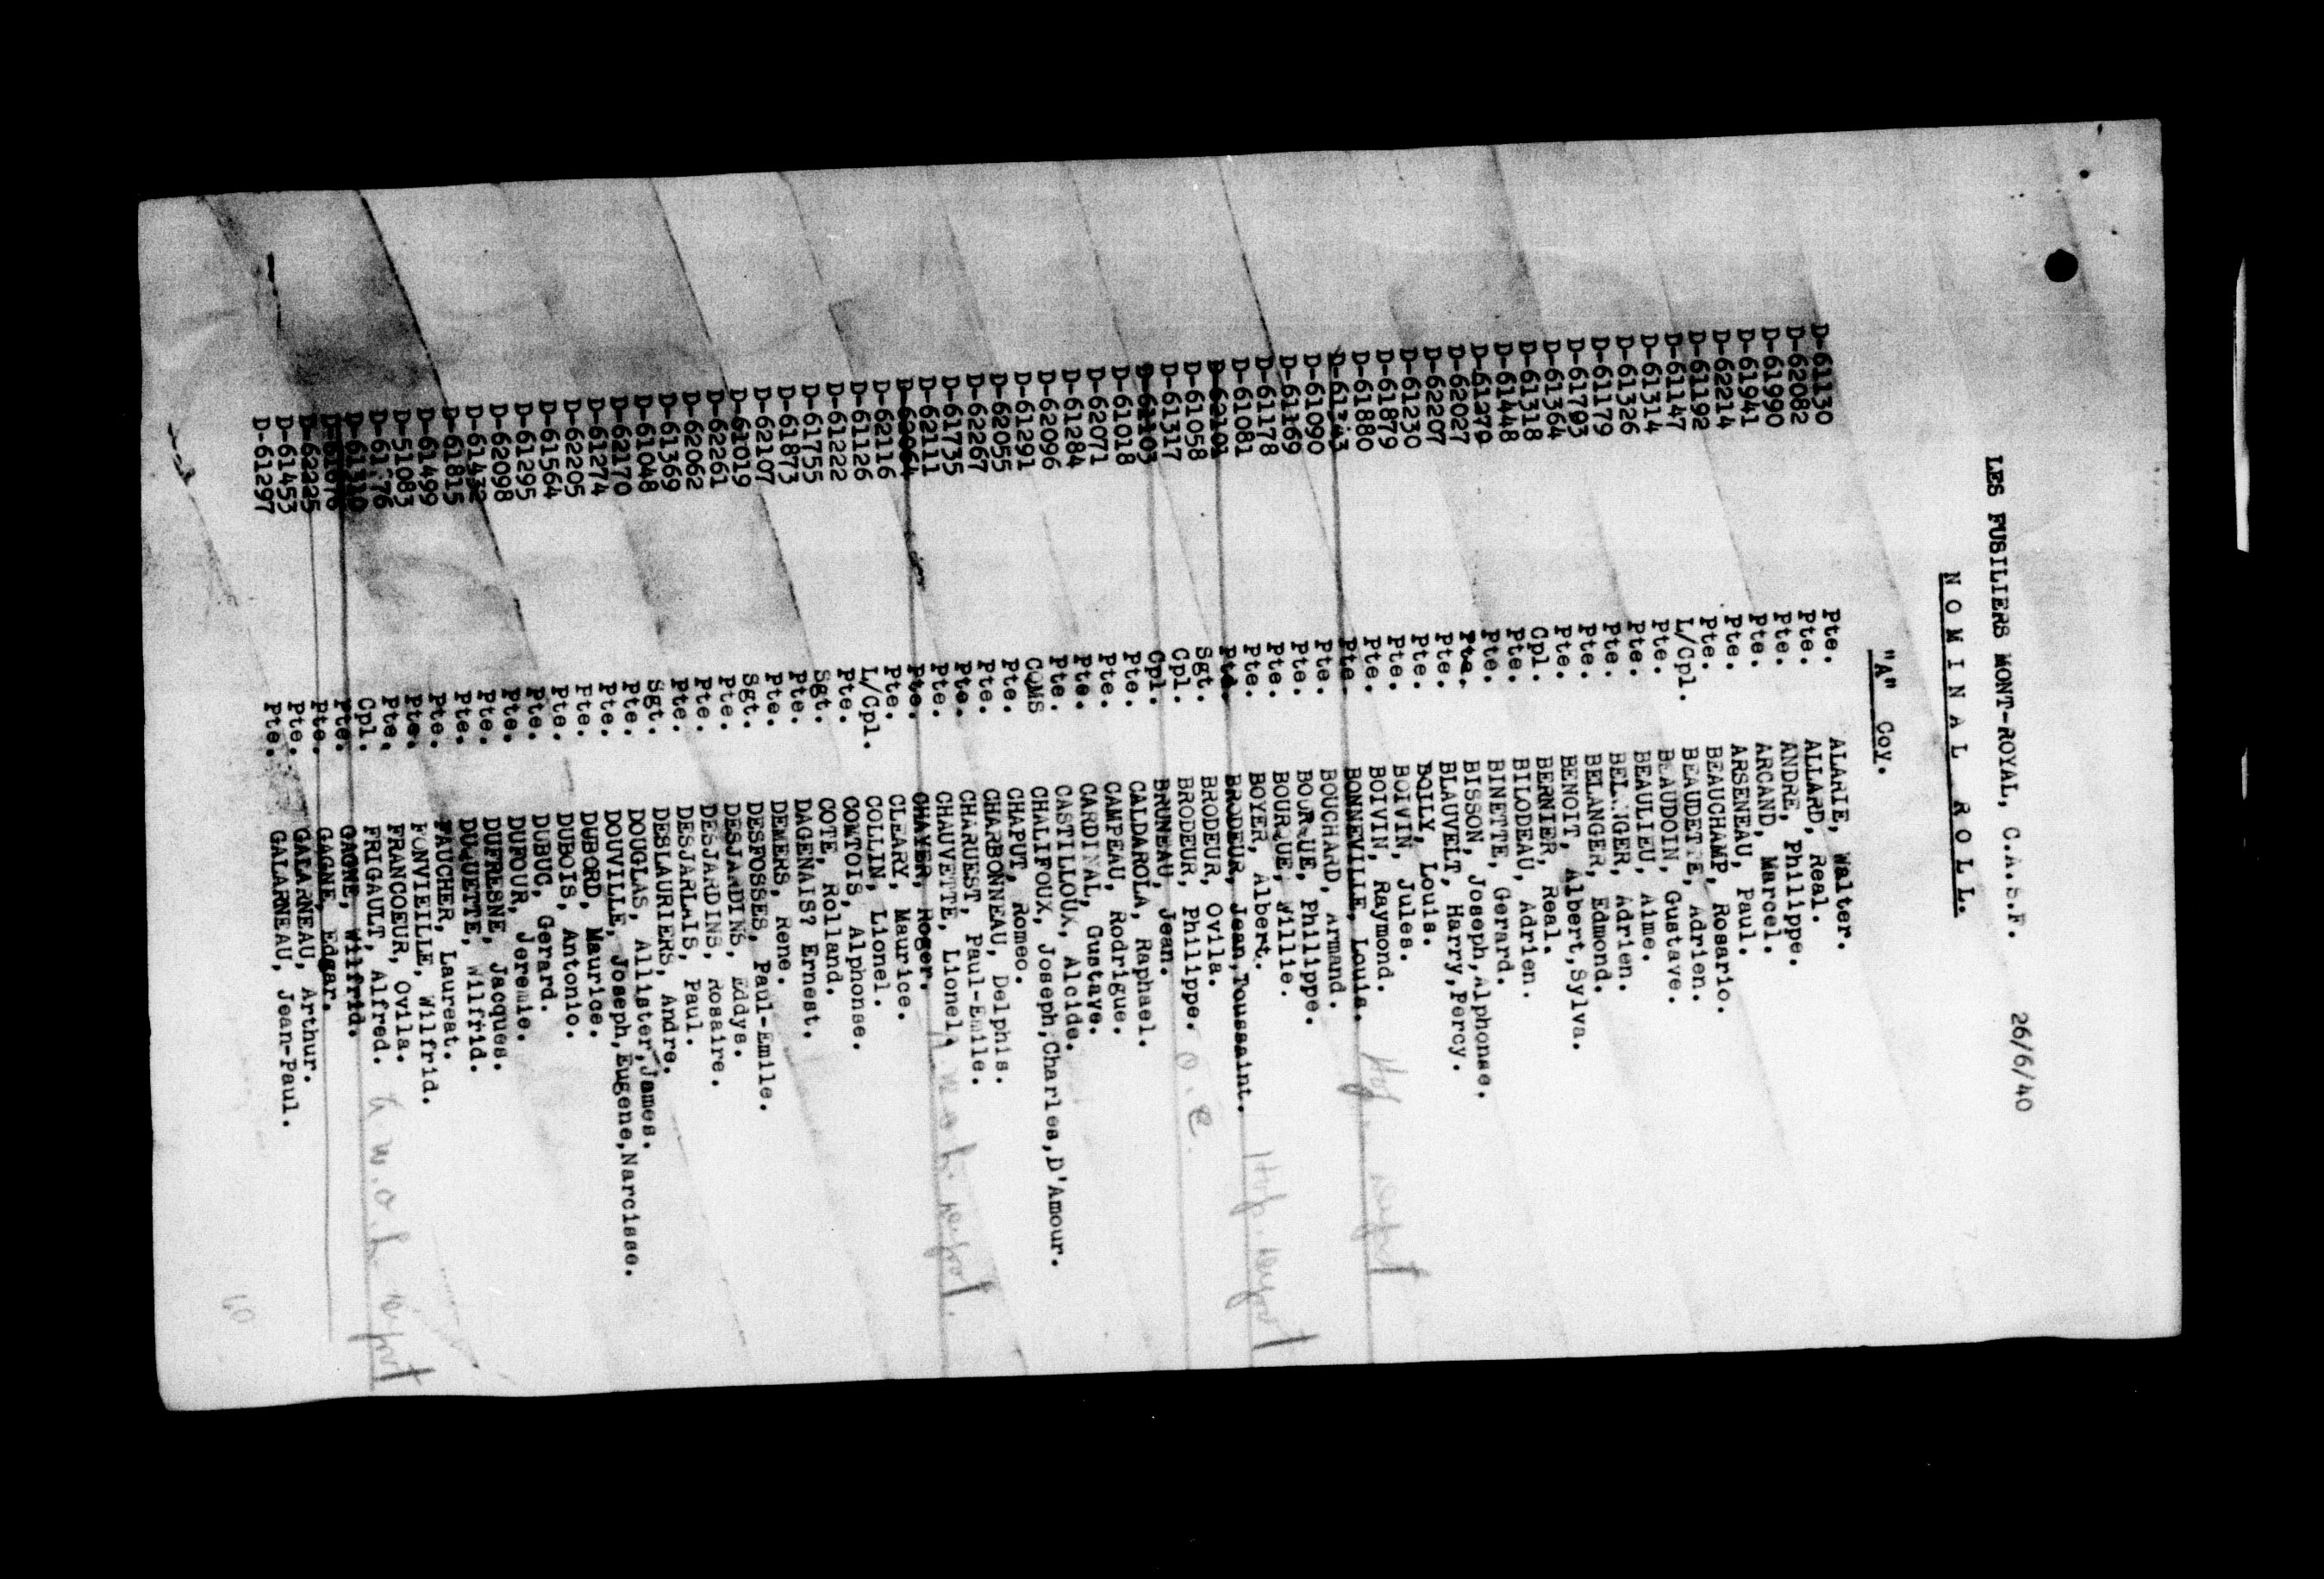 LES FUSILIERS MONT-ROYAL, C.A.S.F. 26/6/40
NOMINAL ROLL.
"A" Coy.
D-61130 Pte. ALARIE, Walter.
D-62082 Pte. ALLARD, Real.
D-61990 Pte. ANDRE, Philippe.
D-61941 Pte. ARCAND, Marcel.
D-62214 Pte. ARSENEAU, Paul.
D-61192 Pte. BEAUCHAMP, Rosario.
D-61147 L/Cpl. BEAUDETTE, Adrien.
D-61314 Pte. BEAUDOIN, Gustave.
D-61326 Pte. BEAULIEU, Aime.
D-61179 Pte. BELANGER, Adrien.
D-61793 Pte. BELANGER, Edmond.
D-61364 Pte. BENOIT, Albert,Sylva.
D-61318 Cpl. BERNIER, Real.
D-61448 Pte. BILODEAU, Adrien.
D-61279 Pte. BINETTE, Gerard.
D-62027 Pte. BISSON, Joseph,Alphonse.
D-62207 Pte. BLAUVELT, Harry,Percy.
D-61230 Pte. BOILY, Louis.
D-61879 Pte. BOIVIN, Jules.
D-61880 Pte. BOIVIN, Raymond.
D-61343 Pte. BONNEVILLE, Louis.
D-61090 Pte. BOUCHARD, Armand.
D-61169 Pte. BOURQUE, Philippe.
D-61178 Pte. BOURQUE, Willie.
D-61081 Pte. BOYER, Albert.
D-62101 Pte. BRODEUR, Jean,Toussaint.
D-61058 Sgt. BRODEUR, Ovila.
D-61317 Cpl. BRODEUR, Philippe.
D-61103 Cpl. BRUNEAU, Jean.
D-61018 Pte. CALDAROLA, Raphael.
D-62071 Pte. CAMPEAU, Rodrigue.
D-61284 Pte. CARDINAL, Gustave.
D-62096 Pte. CASTILLOUX, Alcide.
D-61291 CQMS CHALIFOUX, Joseph,Charles,D'Amour.
D-62055 Pte. CHAPUT, Romeo.
D-62267 Pte. CHARBONNEAU, Delphis.
D-61735 Pte. CHARUEST, Paul-Emile.
D-62111 Pte. CHAUVETTE, Lionel.
D-62064 Pte. CHAYER, Roger.
D-62116 Pte. CLEARY, Maurice.
D-61126 L/Cpl. COLLIN, Lionel.
D-61222 Pte. COMTOIS, Alphonse.
D-61755 Sgt. COTE, Rolland.
D-61873 Pte. DAGENAIS? Ernest.
D-62107 Pte. DEMERS, Rene.
D-61019 Sgt. DESFOSSES, Paul-Emile.
D-62261 Pte. DESJARDINS, Eddye.
D-62062 Pte. DESJARDINS, Rosaire.
D-61369 Pte. DESJARLAIS, Paul.
D-61048 Sgt. DESLAURIERS, Andre.
D-62170 Pte. DOUGLAS, Allister,James.
D-61274 Pte. DOUVILLE, Joseph,Eugene,Narcisse.
D-62205 Pte. DUBORD, Maurice.
D-61564 Pte. DUBOIS, Antonio.
D-61295 Pte. DUBUC, Gerard.
D-62098 Pte. DUFOUR, Jeremie.
D-61432 Pte. DUFRESNE, Jacques.
D-61815 Pte. DUQUETTE, Wilfrid.
D-61499 Pte. FAUCHER, Laureat.
D-51083 Pte. FONVIEILLE, Wilfrid.
Pte. FRANCOEUR, Ovila.
Cpl. FRIGAULT, Alfred.
Pte. GAGNE, Wilfrid.
D-62225 Pte. GAGNE, Edgar.
D-61453 Pte. GALARNEAU, Arthur.
D-61297 Pte. GALARNEAU, Jean-Paul.